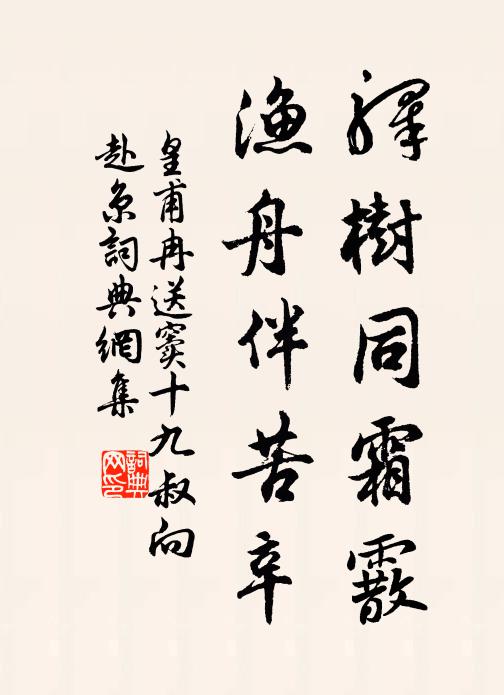 驛樹同霜霰
漁舟伴苦辛
皇甫冉送竇十九叔向
赴京詞典網集
詞典
网印